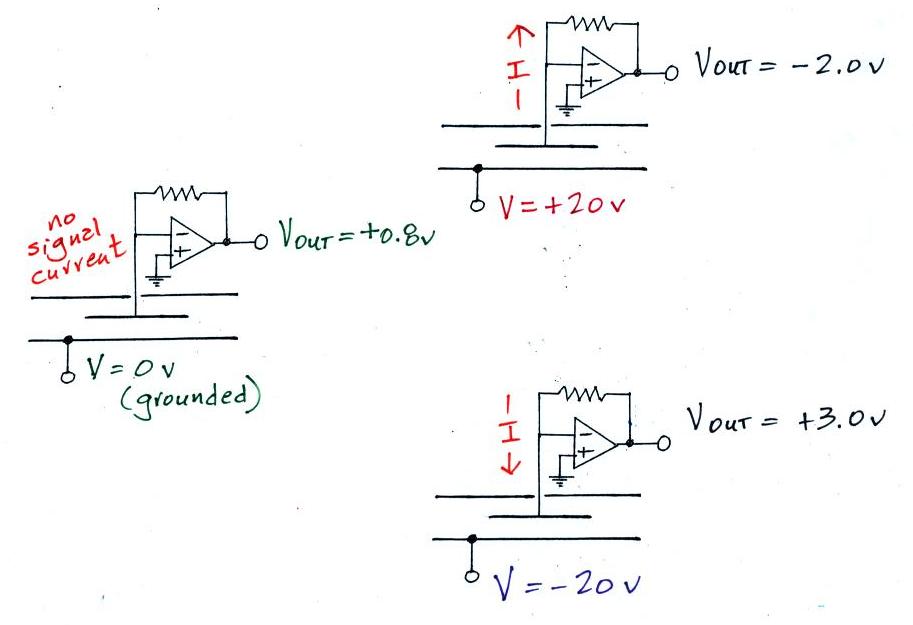 I
- +
VOUT = -2.0 v
V = +20 v
no
signal
current
- +
VOUT = +0.8v
V = 0 v
(grounded)
I
- +
VOUT = +3.0 v
V = -20 v